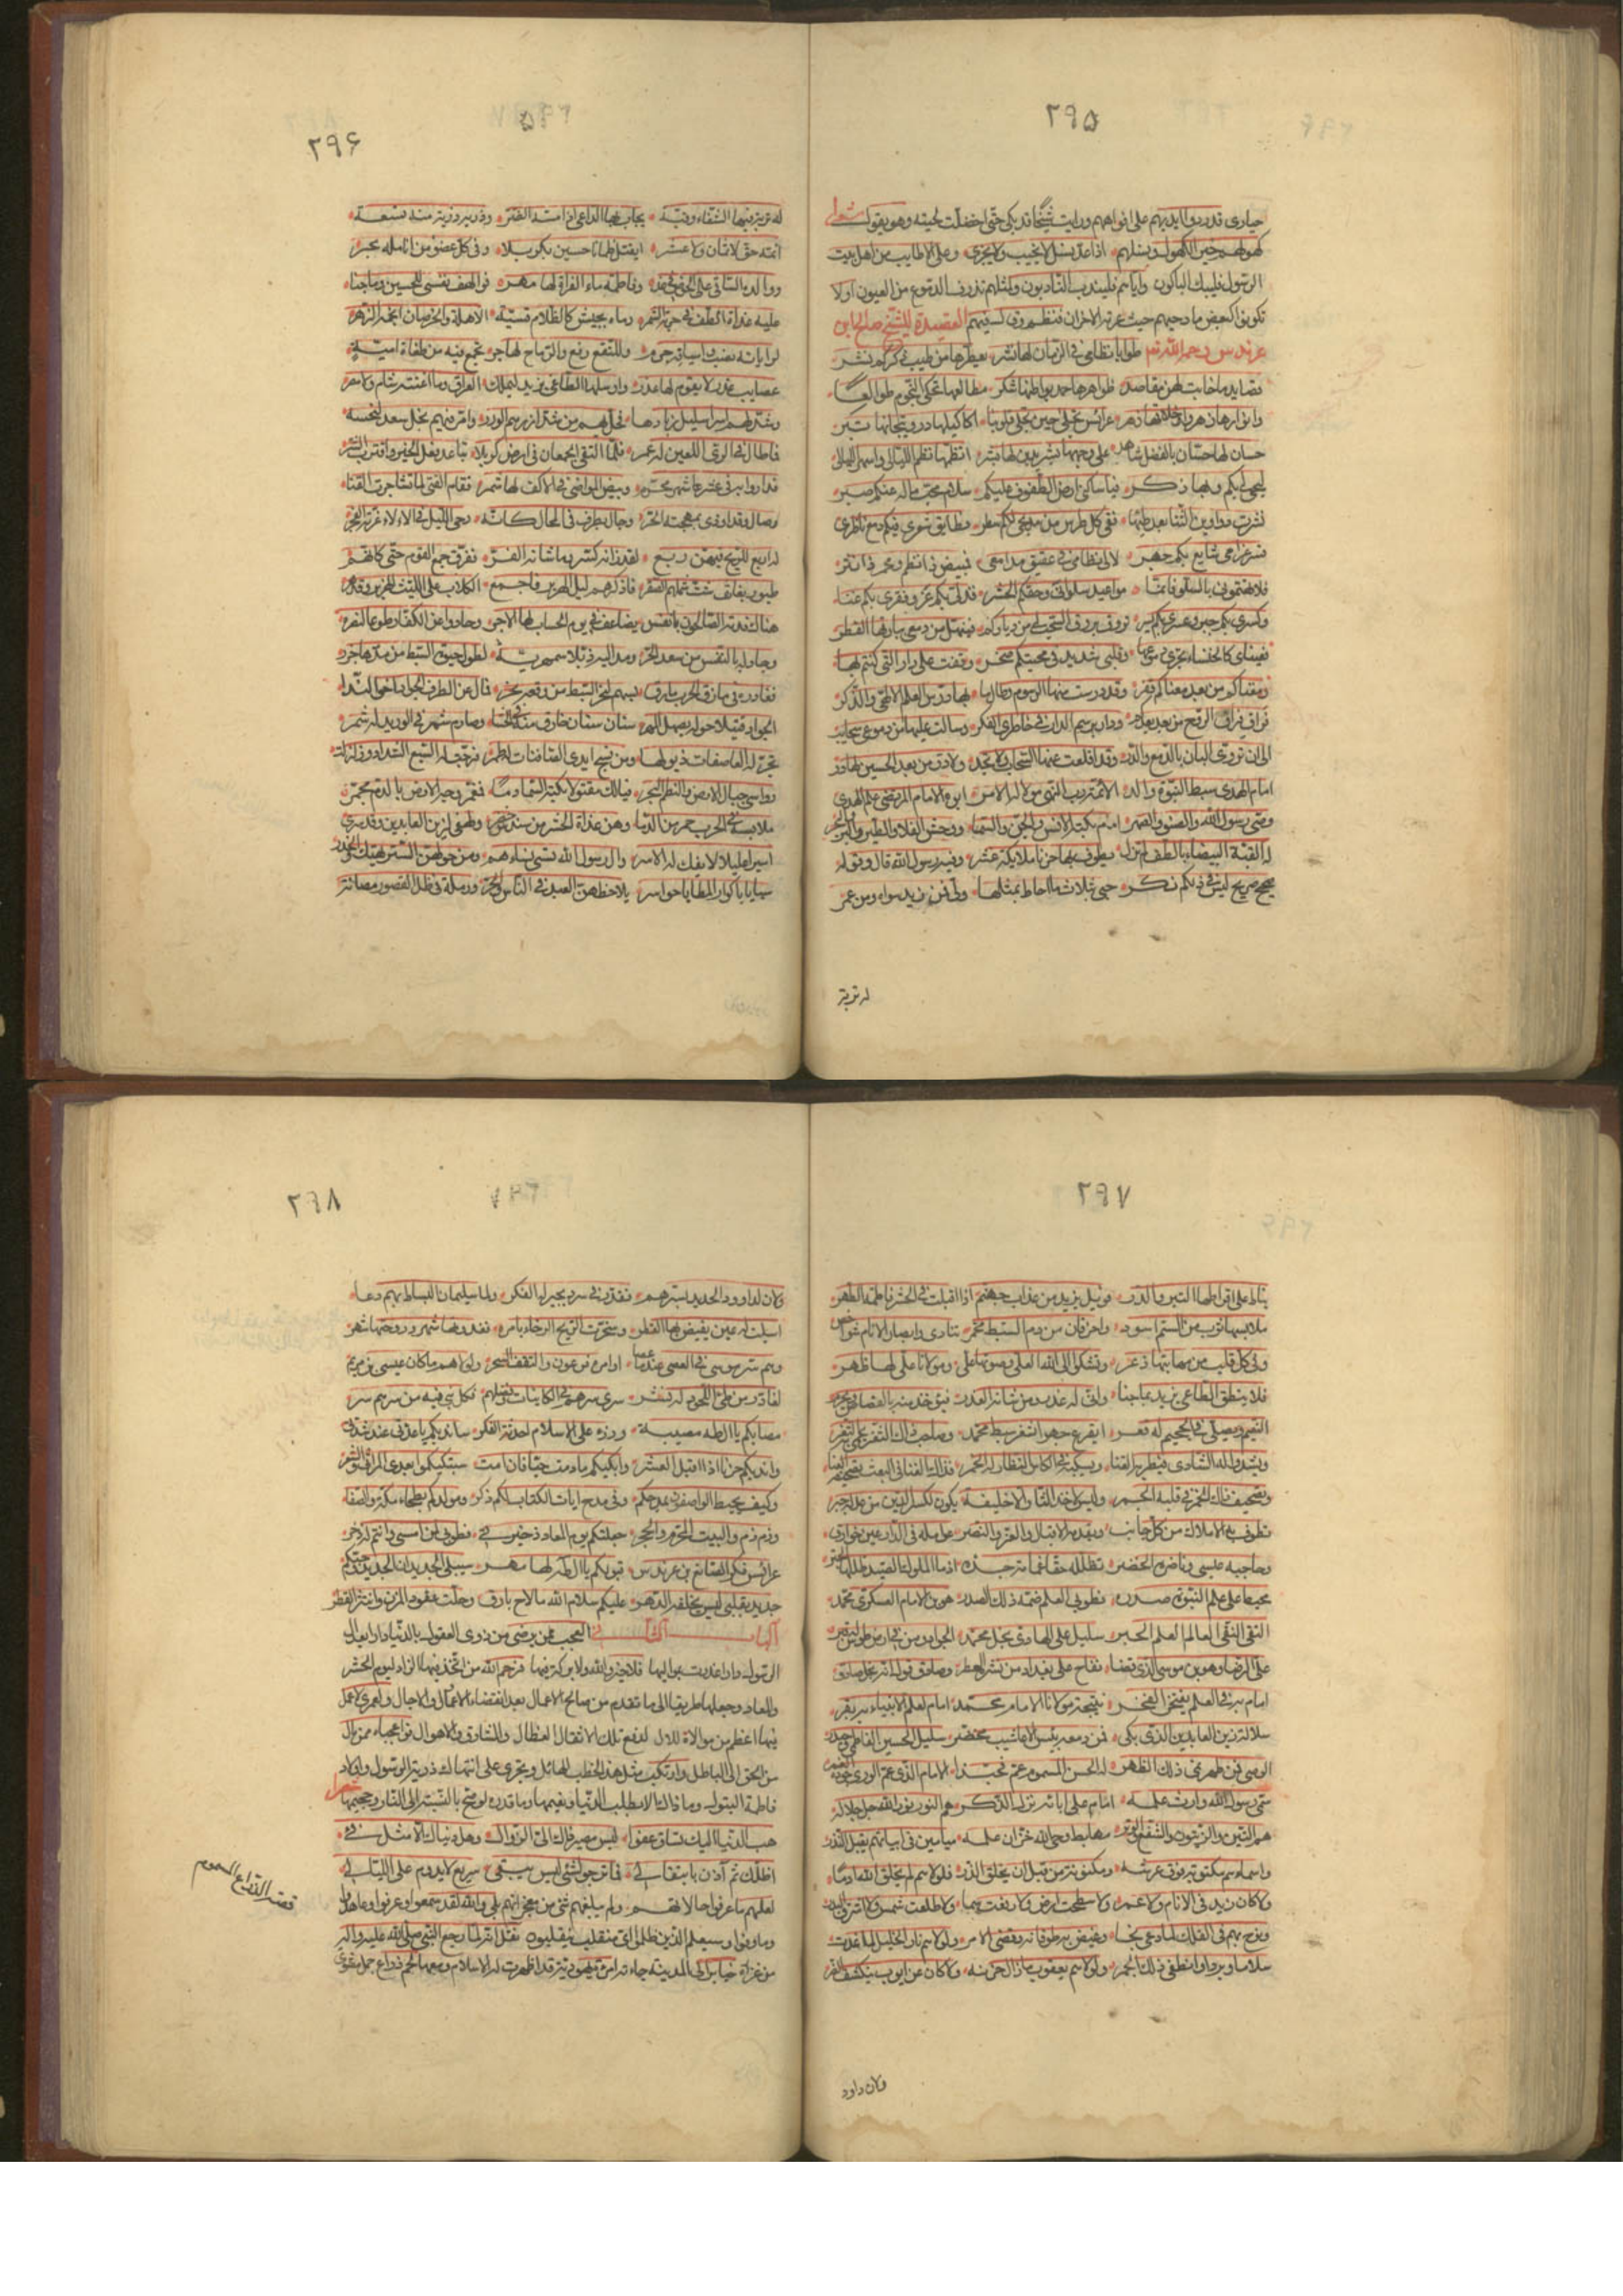 ٢٩٥
حيارى قد ردوا ايديهم على افواههم ورايت شيخا قد بكى حتى اخضلت لحيته وهو يقول شعرا
كهولهم خير الكهول ونسلهم اذا عد نسل لا يخيب ولا يخزى وعلى الاطايب من اهل بيت
الرسول فليبك الباكون واياهم فليندب النادبون ولمثلهم تذرف الدموع من العيون اولا
تكونوا كبعض مادحيهم حيث عرته الاحزان فنظم وقال فيهم القصيدة للشيخ صالح ابن
عرندس رحمه الله نعم طوايا نظامي في الزمان لها نشر يعطرها من طيب ذكراكم نشر
قصايد ما خابت لهن مقاصد ظواهرها حمد بواطنها شكر مطالعها تحكي النجوم طوالعا
وانوارها زهر واخلاقها زهر عرائس تجلى حين تجلى قلوبنا اكاليلها در وتيجانها تبر
حسان لها حسان بالفضل شاهد على وجهها بشر يدين لها بشر انظمها نظم اللئالي واسهر الليالي
ليحيى لكم وبها ذكر فيا ساكني ارض الطفوف عليكم سلام محب ماله عنكم صبر
نشرت دواوين الثنا بعد طيها ففي كل طرس من مديحي لكم سطر فطابق شعري فيكم دمع ناظري
فسر غرامي شايع بكم جهر لالي نظامي في عقيق مدامعي فبيض ذا نظم وحمر ذا نثر
فلا تتهموني بالسلو فانما مواعيد سلواني وحقكم الحشر فذلي بكم عز وفقري بكم غنا
وكسري بكم جبر وعسري بكم يسر تروق بروق السحب لي من دياركم فينهل من دمعي ببارقها القطر
فعيناي كالخنساء تجري دموعها وقلبي شديد في محبتكم صخر وقفت على دار التي كنتم بها
ومغناكم من بعد معناكم قفر وقد درست منها الرسوم وطالما بها درس العلم الالهي والذكر
فراق فراق الروح من بعد بعدكم ودار برسم الدار في خاطري الفكر وسالت عليها من دموعي سحايب
الى ان تروى البان بالدمع والسدر وقد اقلعت عنها السحاب ولا تجد ولا در من بعد الحسين لها در
امام الهدى سبط النبوة والد الائمة رب النهى مولا له الامر ابوه الامام المرتضى علم الهدى
وصي رسول الله والصنو والصهر امام بكته الانس والجن والسما ووحش الفلا والطير والبر والبحر
له القبة البيضاء بالطف لم تزل يطوف بها حزنا ملايكة عشر وفيه رسول الله قال وقوله
صحيح صريح ليس في ذلكم نكر حبي بثلاث ما احاط بمثلها ولي فمن زيد سواه ومن عمر
له تربة
٢٩۶
له تربة فيها الشفاء وقبة يجاب بها الداعي اذا مسه الضر وذرية درية منه تسعة
ائمة حق لا ثمان ولا عشر ايقتل ظمانا حسين بكربلا وفي كل عضو من انامله بحر
ووالده الساقي على الحوض في غد وفاطمة ماء الفرات لها مهر فوا لهف نفسي للحسين وما جنا
عليه غداة الطف في حربه الشمر رماه بجيش كالظلام قسيه الاهلة والخرصان انجمه الزهر
لراياته نصب واسيافه جزم وللنقع رفع والرماح لها جر تجمع فيه من طغاة امية
عصايب غدر لا يقوم لها عذر وارسلها الطاغي يزيد ليملك العراق وما اغنته شام ولا مصر
وشد لهم ازرا سليل زيادها فحل بهم من شد ازرهم الوزر وامر فيهم نجل سعد لنحسه
فما طال في الري اللعين له عمر فلما التقى الجمعان في ارض كربلا تباعد فعل الخير واقترب الشر
فداروا به في عشر عاشر محرم وبيض المواضي في الاكف لها شمر فقام الفتى لما تشاجرت القنا
وصال وقد اودى بمهجته الحر وجال بطرف في المجال كانه دجى الليل في لالاء غرته الفجر
له اربع للريح فيهن ربع لقد زانه كر وما شانه الفر ففرق جمع القوم حتى كانهم
طيور بغاث شتت شملهم الصقر فاذكرهم ليل الهرير فاجمع الكلاب على الليث الهزبر وقد هر
هناك فدته الصالحون بانفس يضاعف في يوم الحساب لها الاجر وحادوا عن الكفار طوعا لنصره
وجاد له بالنفس من سعده الحر ومد اليه ذبلا سمهرية لطول حيوة السبط من مدها جزر
فغادره في مازق الحرب مارق بسهم لنحر السبط من وقعه نحر فمال عن الطرف الجواد اخو الندا
الجواد قتيلا حوله يصهل المهر سنان سنان خارق منه في الحشا وصارم شمر في الوريد له شمر
تجر له العاصفات ذيولها ومن نسج ايدي الصافنات له طمر فرجت له السبع الشداد وزلزلت
رواسي جبال الارض والتطم البحر فيا لك مقتولا بكته السما دما فمغبر وجه الارض بالدم محمر
ملابسه في الحرب حمر من الدما وهن غداة الحشر من سندس خضر ولهفي لزين العابدين وقد سرى
اسيرا عليلا لا يفك له الاسر وال رسول الله تسبى نساءهم ومن حولهن الستر يهتك والخدر
سبايا باكوار المطايا حواسر يلاحظهن العبد في الناس والحر ورملة في ظل القصور مصانة
٢٩٧
يناط على اقراطها التبر والدر فويل يزيد من عذاب جهنم اذا اقبلت في الحشر فاطمة الطهر
ملابسها ثوب من السم اسود واخر قان من دم السبط محمر تنادي وابصار الانام شواخص
وفي كل قلب من مهابتها ذعر وتشكوا الى الله العلي وصوتها علي ومولانا علي لها ظهر
فلا ينطق الطاغي يزيد بما جنا وانى له عذر ومن شانه الغدر فيؤخذ منه بالقصاص ويحرم
النعيم ويصلى في الجحيم له قعر ايقرع جهرا ثغر سبط محمد وصاحب ذاك الثغر يحمى به الثغر
ويشدو له الشادي فيطربه الغنا ويسكب في الكاس النظار له الخمر فذاك الغنا في البعث تصحيفه العنا
وتصحيف ذاك الخمر في قلبه الجمر وليس لاخذ الثار الا خليفة يكون لكسر الدين من عدله جبر
تطوف به الاملاك من كل جانب ويقدمه الاقبال والعز والنصر عوامله في الدارعين شوارع
وحاجبه عيسى وناظره الخضر تظلله حقا عمامة جده اذا ما الملوك الصيد ظللها الجبر
محيط على علم النبوة صدره فطوبى لعلم ضمه ذلك الصدر هو ابن الامام العسكري محمد
التقي النقي العالم العلم الحبر سليل علي الهادي نجل محمد الجواد ومن في ارض طوس له قبر
علي الرضا وهو ابن موسى الذي قضا ففاح على بغداد من نشره العطر وصادق قول انه نجل صادق
امام به في العلم يفتخر الفخر نتيجة مولانا الامام محمد امام لعلم الانبياء به بقر
سلالة زين العابدين الذي بكى فمن دمعه يبس الاعاشيب مخضر سليل الحسين الفاطمي وحيدر
الوصي فمن طهر نمى ذلك الطهر له الحسن المسموم عم فحبذا الامام الذي عم الورى جوده الغمر
سمي رسول الله وارث علمه امام على ابائه نزل الذكر هم النور نور الله جل جلاله
هم التين والزيتون والشفع والوتر مهابط وحي الله خزان علمه ميامين في ابياتهم يقبل النذر
واسماءهم مكتوبة فوق عرشه ومكنونة من قبل ان يخلق الذر فلولاهم لم يخلق الله ادما
ولا كان زيد في الانام ولا عمر ولا سطحت ارض ولا رفعت سما ولا طلعت شمس ولا اشرق البدر
ونوح بهم في الفلك لما دعى نجا وغيض به طوفانه وقضي الامر ولولاهم نار الخليل لما غدت
سلاما وبردا وانطفى ذلك الجمر ولولاهم يعقوب ما زال حزنه ولا كان عن ايوب ينكشف الضر
ولان داود
٢٩٨
ولان لداوود الحديد بسرهم فقدر في سرد يحير له الفكر ولما سليمان البساط بهم دعا
اسيلت له عين يفيض بها القطر وسخرت الريح الرخاء بامره فغدوتها شهر وروحتها شهر
وهم سر موسى في العصى عندما عصا اوامره فرعون والتقف السحر ولولاهم ما كان عيسى بن مريم
لعاذر من طي اللحود له نشر سرى سرهم في الكاينات بفضلهم فكل نبي فيه من سرهم سر
مصابكم يا ال طه مصيبة ورزء على الاسلام احدثه الفكر ساندبكم يا عدتي عند شدتي
واندبكم حزنا اذا اقبل العشر وابكيكم ما دمت حيا فان امت ستبكيكموا بعدي المراثي والشعر
وكيف يحيط الواصفون بمدحكم وفي مدح ايات الكتاب لكم ذكر ومولدكم بطحاء مكة والصفا
وزمزم والبيت المحرم والحجر جعلتكم يوم المعاد ذخيرتي فطوبى لمن امسى وانتم له ذخر
عرائس فكر الصالح بن عرندس قبولكم يا ال طه لها مهر سيبلى الجديدان الجديد وحبكم
جديد بقلبي ليس يخلقه الدهر عليكم سلام الله ما لاح بارق وحلت عقود المزن وانتثر القطر
الباب الثاني العجب ممن يرضى من ذوي العقول بالدنيا دارا بعد ال
الرسول ودار اغدرت بمواليها فلا خير والله ولا بركة فيها فرحم الله من اتخذ فيها الزاد ليوم الحشر
والمعاد وجعلها طريقا الى ما تقدم من صالح الاعمال بعد انقضاء الاعمال والاجال ولعمري لا عمل
فيها اعظم من موالاة للال لدفع تلك الاثقال العظال والمشاق والاهوال فوا عجباه ممن مال
من الحق الى الباطل وارتكب مثل هذا الخطب الهائل وتجرى على انتهاك ذرية الرسول واولاد
فاطمة البتول وما ذاك الا لطلب الدنيا ونعيمها وما قدره لو صح بالنسبة الى النار وجحيمها شعرا
هب الدنيا اليك تساق عفوا اليس مصير ذاك الى الزوال وهل دنياك الا مثل فيء
اظلك ثم اذن بانتقال فما ترجوا لشئ ليس يبقى سريع لا يدوم على الليالي
لعلهم ما عرفوا حالاتهم ولم يبلغهم شئ من معجزاتهم بلى والله لقد سمعوا وعرفوا وعاهدوا
وما وفوا وسيعلم الذين ظلموا اي منقلب ينقلبون نقل انه لما رجع النبي صلى الله عليه واله
من غزاة خيبر الى المدينة جاءته امراة يهودية قد اظهرت له الاسلام ومعها لحم ذراع جمل مشوي
قصة الذراع المسموم